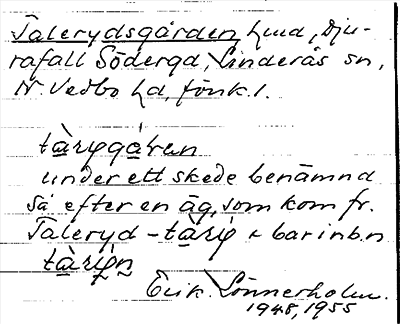 Talerydsgården hmd, Dju-
rafall Söderg<u>d</u>, Linderås sn,
N. Vedbo hd, Jönk. l.
tàrygáṙen
under ett skede benämnd
så efter en äg, som kom fr.
Taleryd – tàrẏ + bar inb.n
tàrẏn
Erik Lönnerholm.
1948, 1955